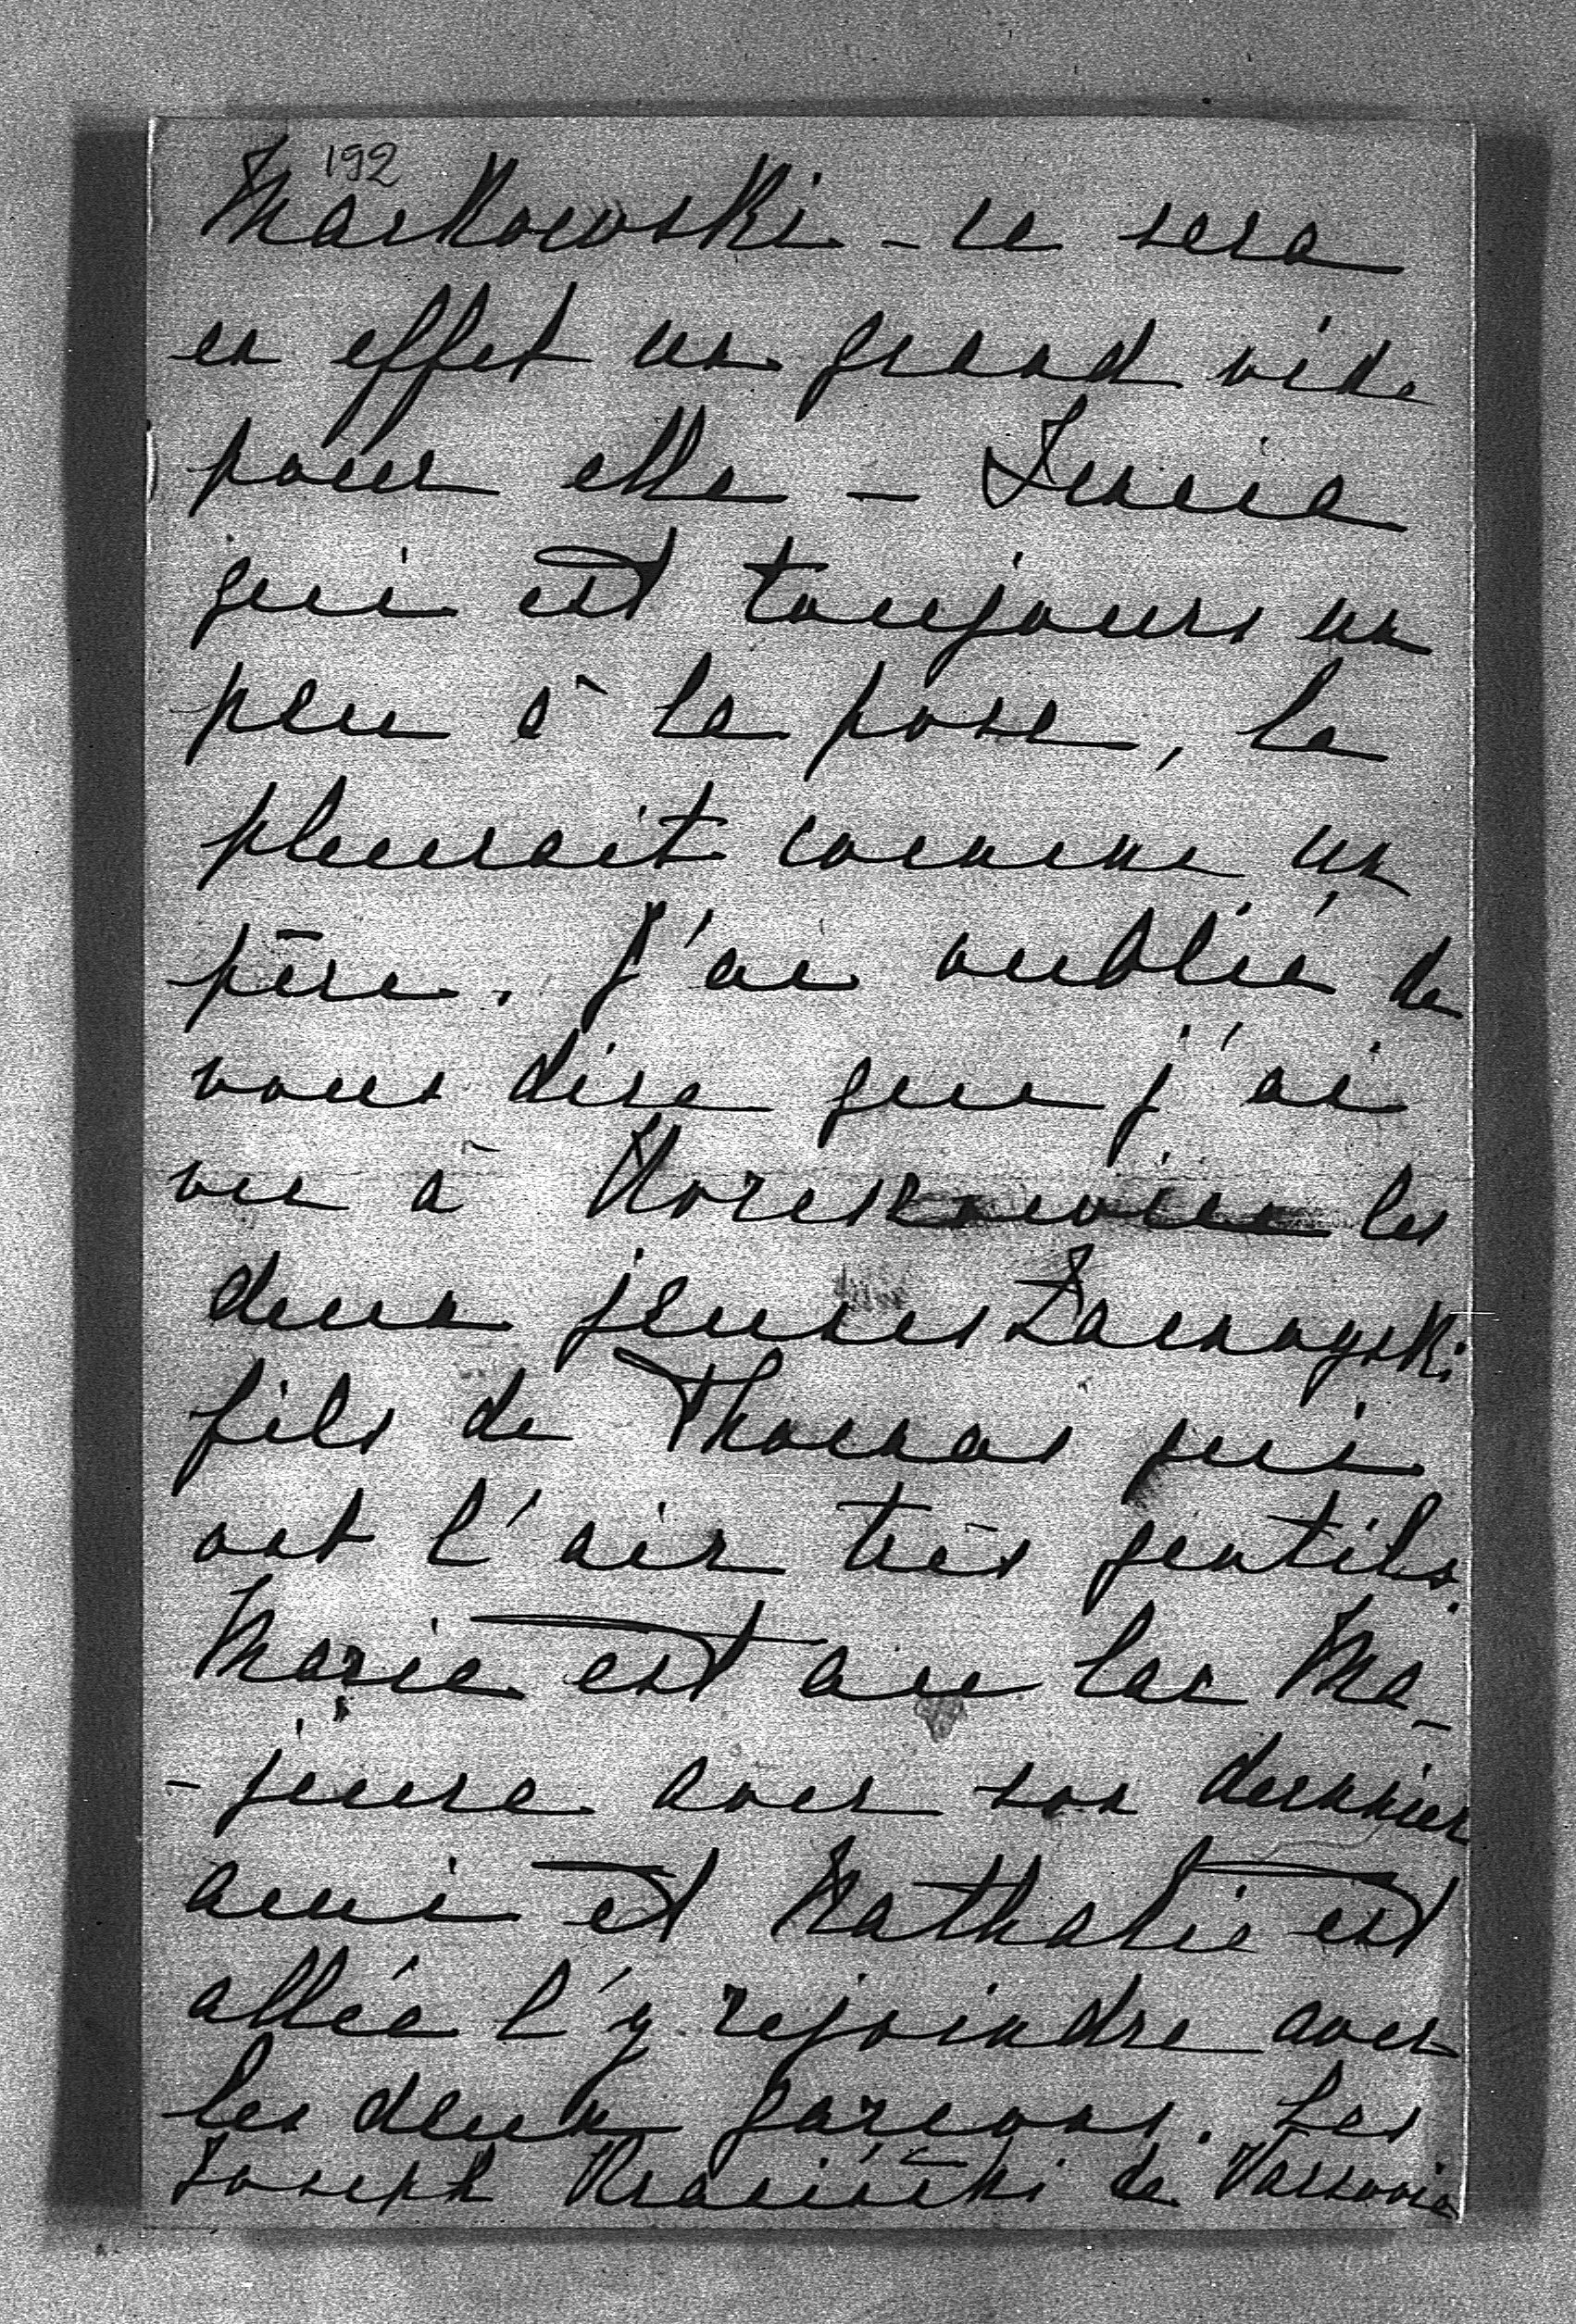 192
Markowski - ce sera
en effet un grand vide
pour elle -
qui est toujours un
peu à la pose, le
pleurait comme un
père. J'ai oublié de
vous dire que j'ai
vu à les
deux jeunes Zamoyski
fils de Thomas qui
ont l'air très gentils.
Marie est au lac Ma-
-jeure avec son dernier
ami et Nathalie est
allée l'y rejoindre avec
les deux garçons. Les
Joseph de Varsovie